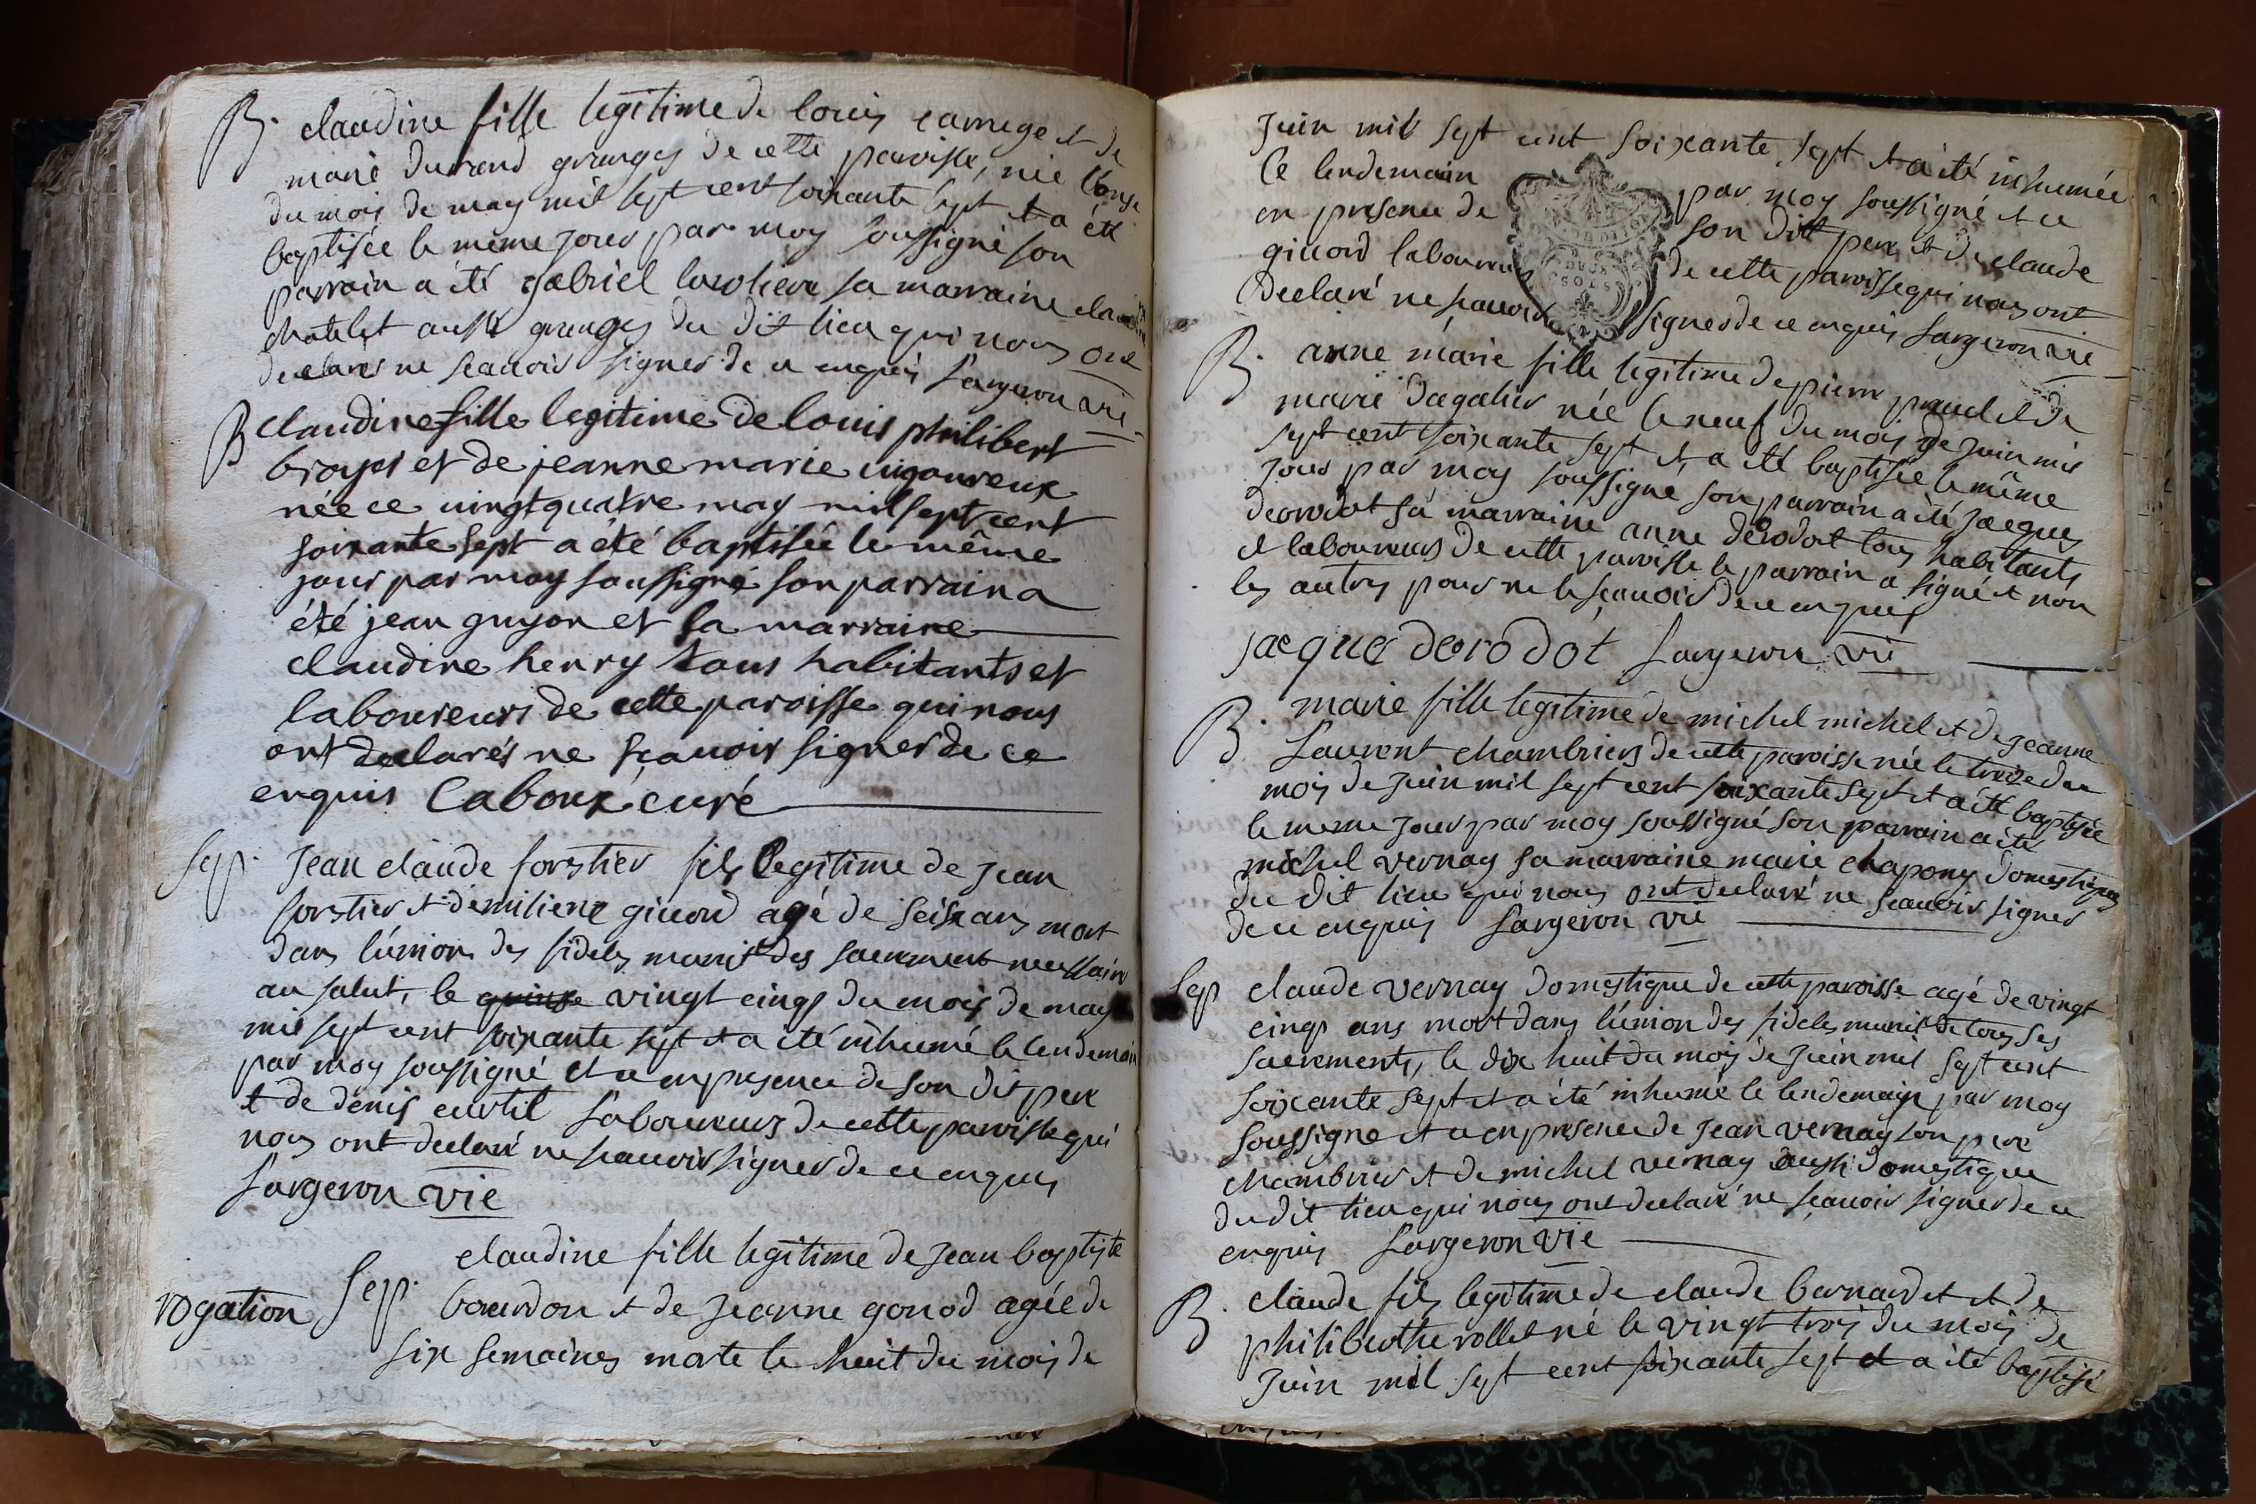 B. claudine fille legitime de louis carruge et de
marie durand granges de cette paroisse, née l'onze
du mois de may mil sept cent soixante sept et a été
baptisée le meme jour par moy soussigné son
parrain a été gabriel lavoliere sa marraine claudine
chatelet aussi granges du dit lieu qui nous ont
declares ne scauoir signer de ce enquis sargeron vié
B claudine fille legitime de louis philibert
broyer et de jeanne marie uigoureux
née ce uingt quatre may mil sept cent
soixante sept a été baptisée le même
jour par moy soussigné son parrain a
été jean guyon et sa marraine
claudine henry tous habitants et
laboureurs de cette paroisse qui nous
ont declarés ne sçauoir signer de ce
enquis Laboux curé
sep. Jean claude forstier fils legitime de jean
forstier et d'emiliene giuord agé de seise ans mort
dans l'union des fideles munit des sacrement necessaire
au salut, le quinze vingt cinqs du mois de may
mil sept cent soixante sept et a été inhumé le lendemain
par moy soussigné et ce en presence de son dit pere
et de denis curtil laboureurs de cette paroisse qui
nous ont declaré ne scauoir signer de ce enquis
Sargeron vié
claudine fille legitime de jean baptiste
rogation sep. bourdon et de jeanne gonod agée de
six semaines morte le huit du mois de
Juin mil sept cent soixante sept et a été inhumée
le lendemain par moy soussigné et ce
en presence de son dit pere et de claude
giuord laboureurs de cette paroisse qui nous ont
Declaré ne scauoir signer de ce enquis sargeron vié
DEUX
SOLS
B. anne marie fille legitime de pierre pauclet de
marie Dagalier née le neuf du mois de juin mil
sept cent soixante sept et a été baptisée le même
jour par moy soussigné son parrain a été jacques
derodot sa marraine anne derodot tous habitants
et laboureurs de cette paroisse le parrain a signé et non
les autres pour ne le sçauoir de ce enquis
jacque derodot sargeron vié
B. marie fille legitime de michel michel et de jeanne
Laurent chambriers de cette paroisse née le treize du
mois de juin mil sept cent soixante sept et a été baptisée
le meme jour par moy soussigné son parrain a été
michel vernay sa marraine marie chapony domestiques
du dit lieu qui nous ont declaré ne scauoir signer
de ce enquis sargeron vié
sep claude vernay domestique de cette paroisse agé de vingt
cinqs ans mort dans l'union des fideles munis de tous ses
sacrements, le dix huit du mois de juin mil sept cent
soixante sept et a été inhumé le lendemain par moy
soussigne et ce en presence de jean vernay son pere
chambrier et de michel vernay aussi domestique
du dit lieu qui nous ont declaré ne scauoir signer de ce
enquis sargeron vié
B. claude fils legitime de claude bernardet et de
philiberthe rollet né le vingt trois du mois de
Juin mil sept cent soixante sept et a été baptisé